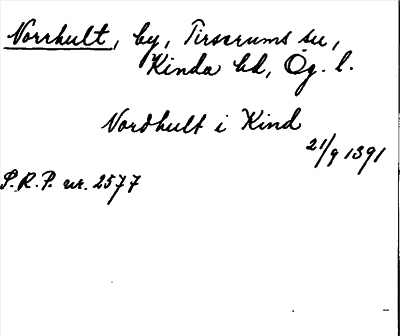 Norrhult, by, Tirserums sn,
Kinda hd, Ög. l.
Nordhult i Kind
21/9 1391
S.R.P. nr. 2577